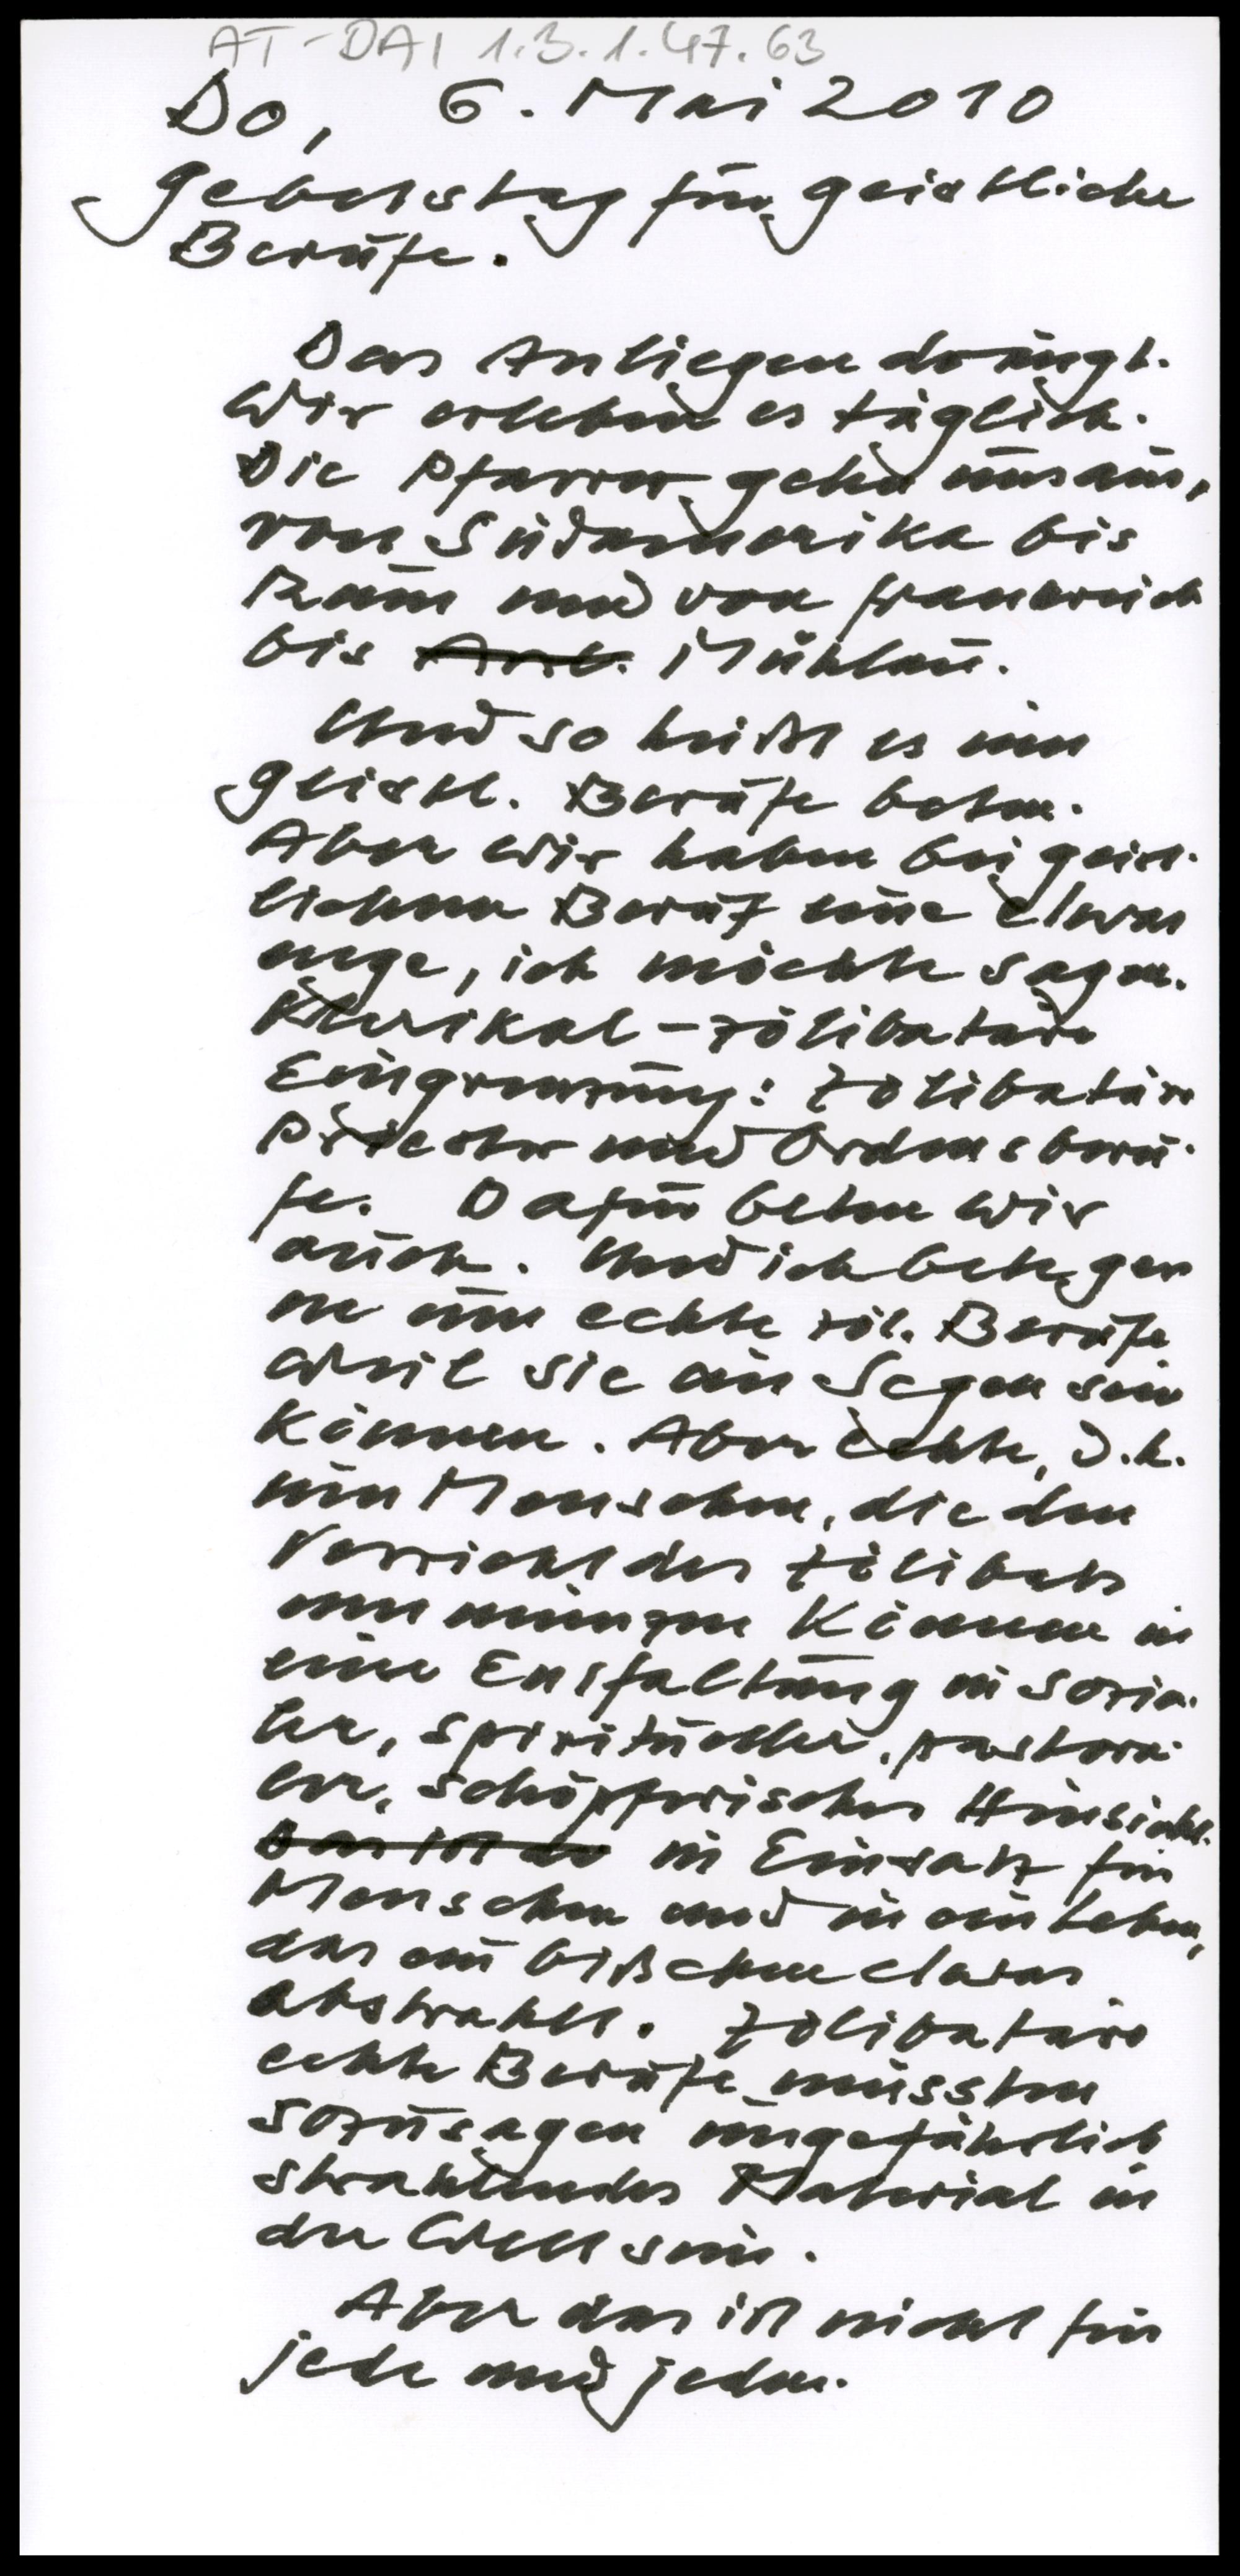 AT-DAI 1.3.1.47.63
Do, 6. Mai 2010
Gebetstag für geistliche
Berufe.
Das Anliegen drängt.
Wir erleben es täglich.
Die Pfarrer gehn uns aus,
von Südamerika bis
Raum und von Frankreich
bis Mühlau.
Und so heißt es um
geistl. Berufe beten.
Aber wir haben bei geist-
lichem Beruf eine etwas
enge, ich möchte sagen.
Klerikal-zölibatäre
Eingrenzung: Zölibatäre
Priester und Ordensberu-
fe. Dafür beten wir
auch. Und ich bete ger-
ne um echte zöl. Berufe
weil sie ein Segen sein
können. Aber echte, d.h.
um Menschen, die den
Verzicht des Zölibats
ummünzen können in
eine Entfaltung in sozia-
ler, spiritueller, pastora-
ler, schöpferischer Hinsicht.
Das ist in Einsatz für
Menschen und in ein Leben,
das ein bißchen etwas
abstrahlt. Zölibatäre
echte Berufe müssten
sozusagen ungefährlich
strahlendes Material in
der Welt sein.
Aber das ist nicht für
jede und jeden.